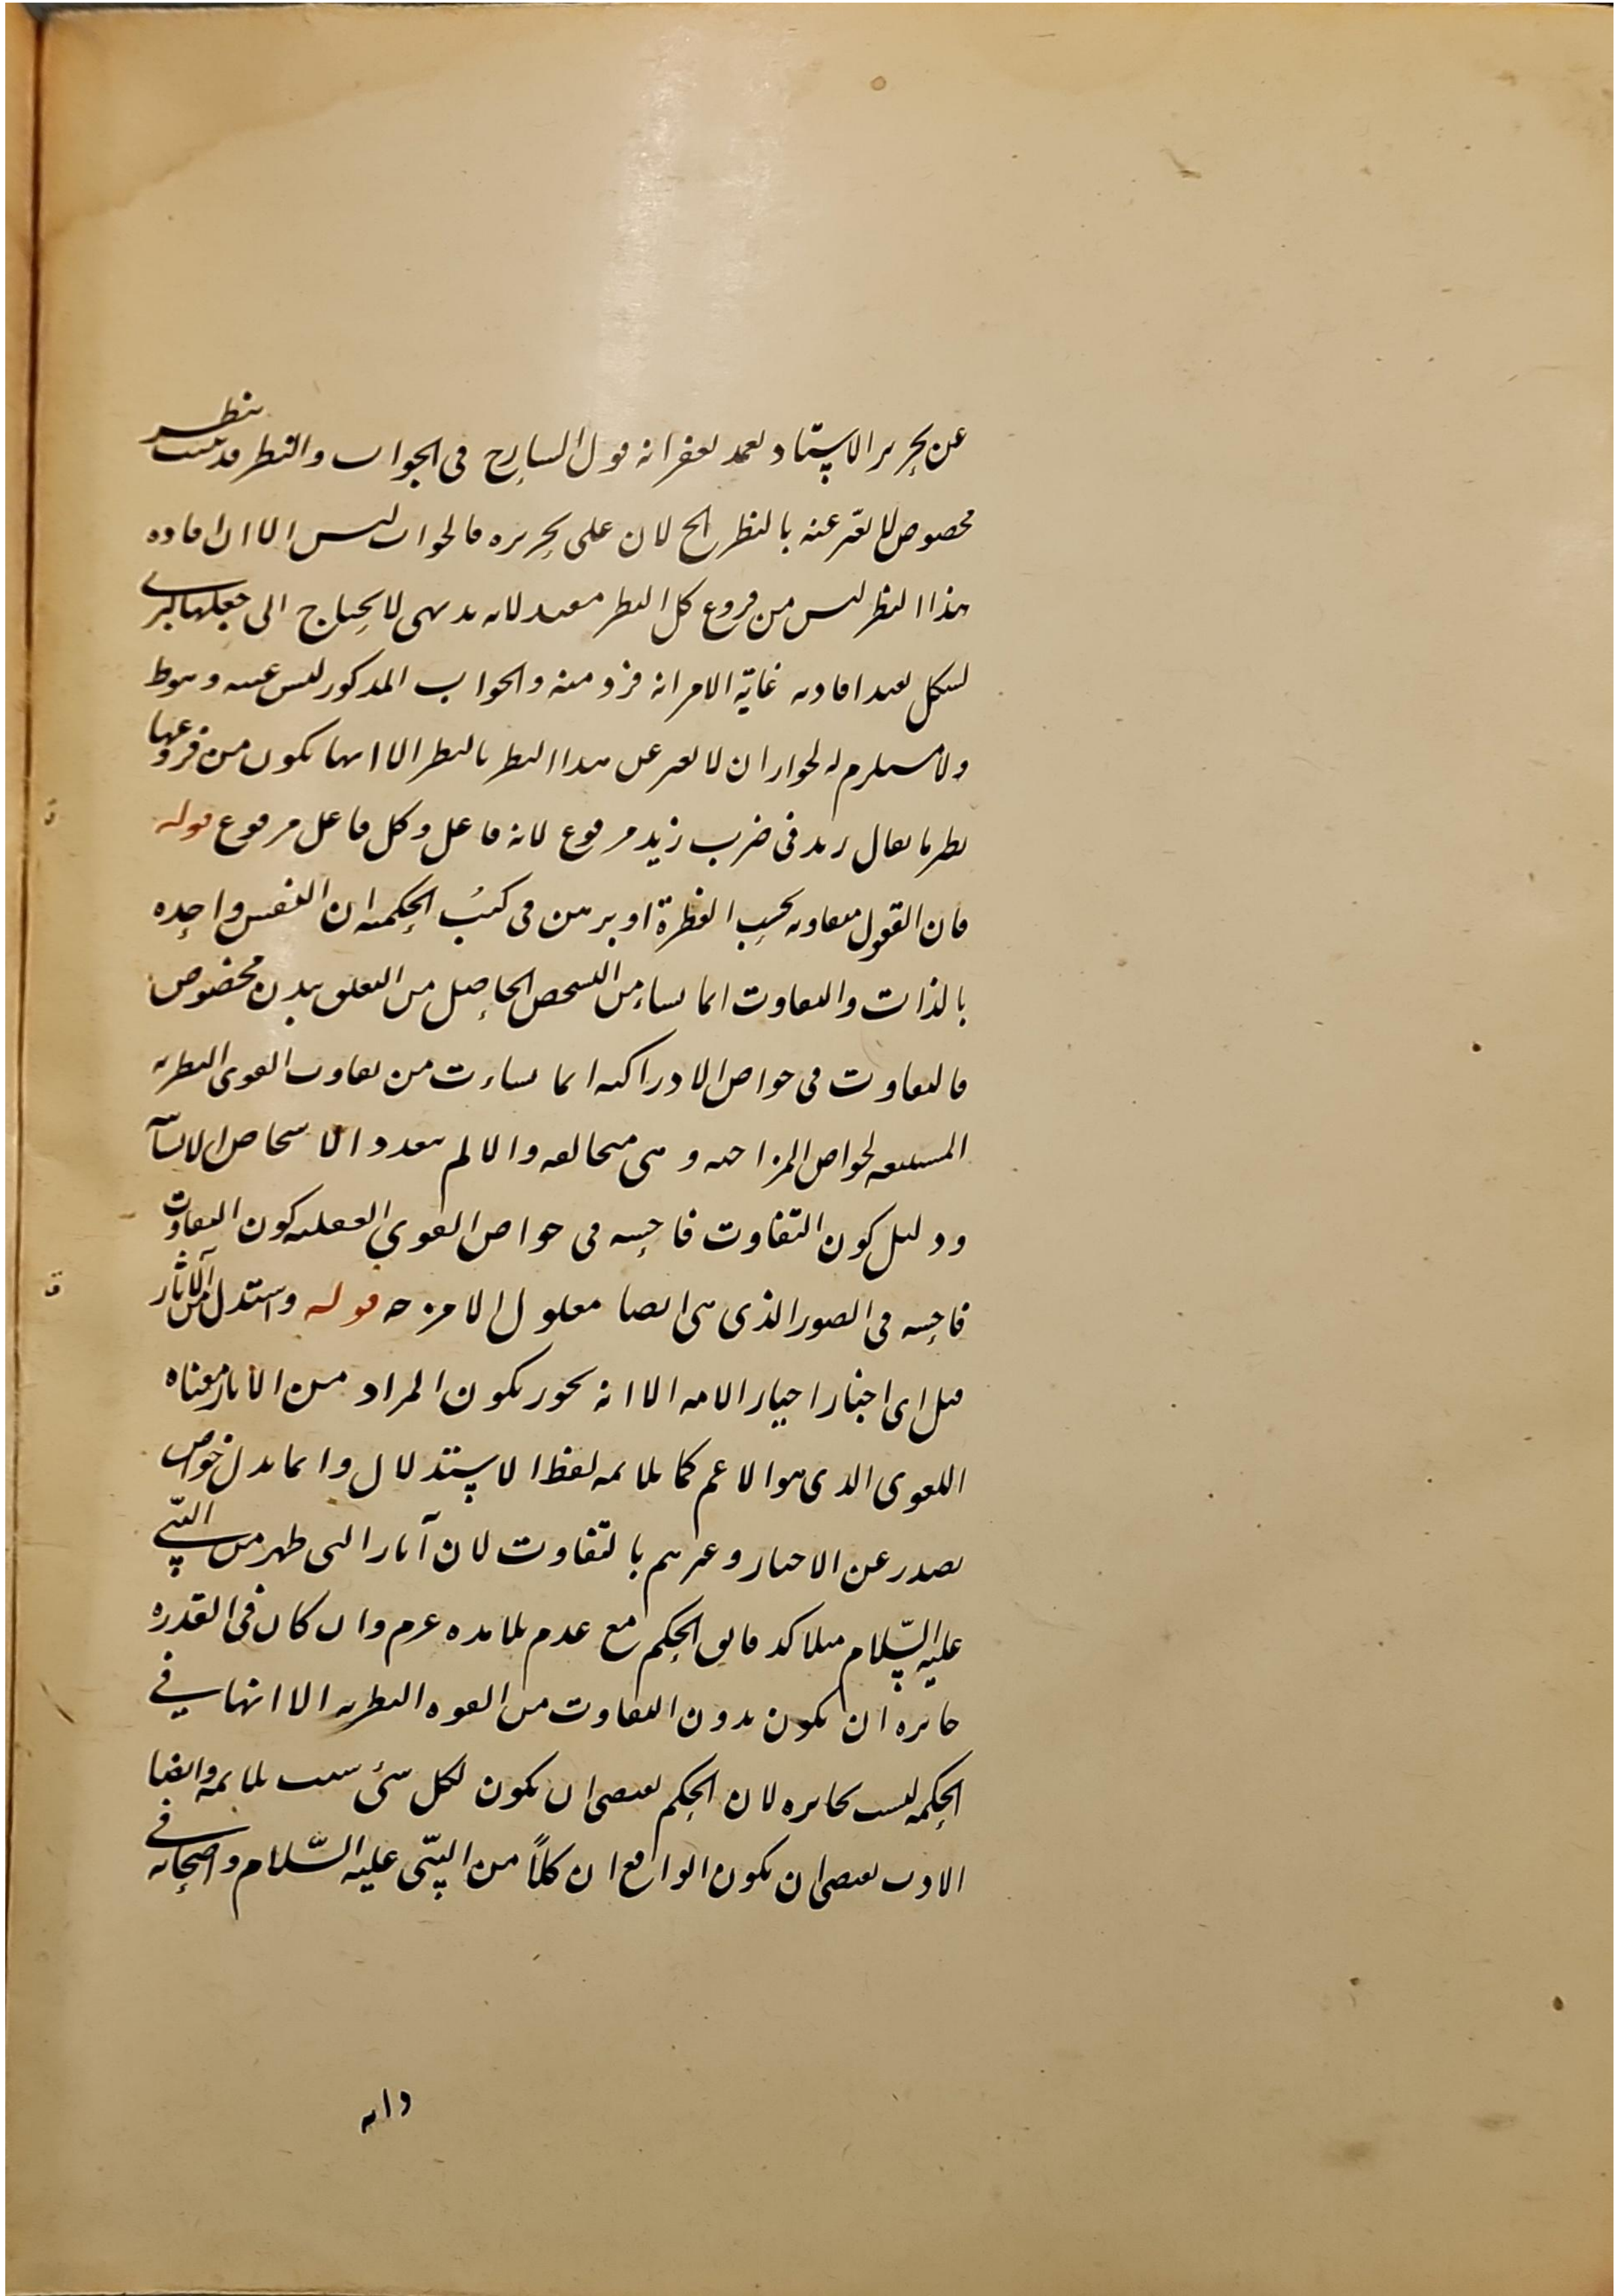 عن تحرير الاستاد تغمد بغفرانه قول الشارح في الجواب والنظر قد يثبت بنظر
مخصوص لا يعبر عنه بالنظر الخ لان على تحريره فالجواب ليس الا ان افاده
هذا النظر ليس من فروع كل النظر مفيد لانه بديهي لا يحتاج الى جعلها كبرى
لشكل يفيد افادته غاية الامر انه فرد منه والجواب المذكور ليس عينه وهو ط
ولا مستلزم له لجواز ان لا يعبر عن هذا النظر بالنظر الا انها يكون من فروعها
نظر ما يقال زيد في ضرب زيد مرفوع لانه فاعل وكل فاعل مرفوع قوله
فان العقول متفاوته بحسب الفطرة او برهن في كتب الحكمة ان النفس واحده
بالذات والتفاوت انما نشاء من التشخص الحاصل من التعلق ببدن مخصوص
فالتفاوت في خواص الادراكيه انما نشاءت من تفاوت القوى النظريه
لخواص المزاجيه وهي متخالفه والا لم يتعدد الاشخاص الانسا
ودليل كون التفاوت فاحشه في خواص القوى العقليه كون التفاوت
فاحشه في الصور الذي هي ايضا معلول الامزجه قوله واستدل من الآثار
قيل اى اخبار اخيار الامه الا انه يجوز يكون المراد من الاثار معناه
اللغوى الذى هو الاعم كما يلائمه لفظ الاستدلال وانما يدل خواص
يصدر عن الاخيار وغيرهم بالتفاوت لان آثار التى ظهر من النبي
عليه السلام مثلا كد قايق الحكم مع عدم تلامذه غيرهم وان كان في القدره
جايزه ان يكون بدون التفاوت من القوه النظريه الا انها في
الحكمه ليست بجايزه لان الحكم يقتضى ان يكون لكل شئ سبب يلايمه وايضا
الادب يقتضى ان يكون الواقع ان كلاً من النبي عليه السلام واصحابه في
دانه